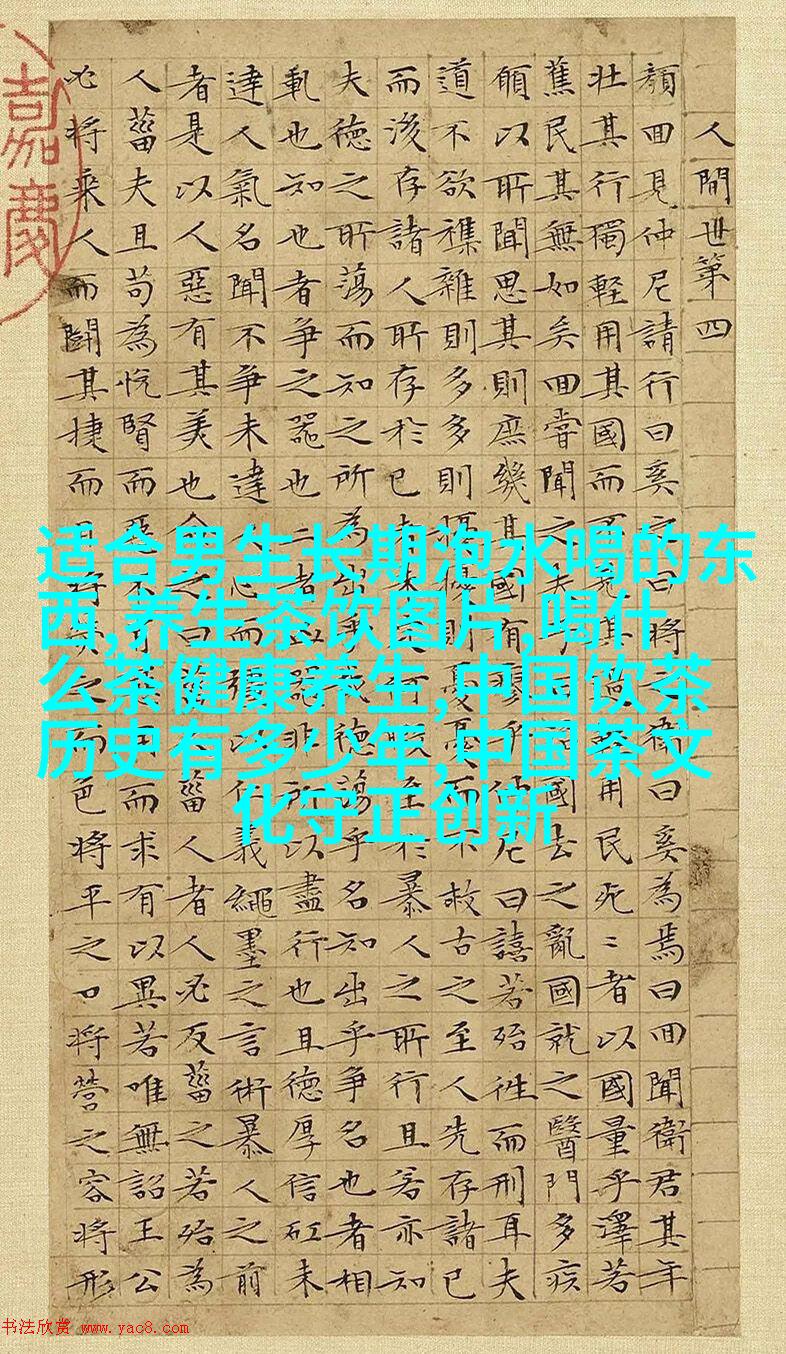 人間世第四
顏囬見仲尼請行曰奚之曰將之衛曰奚為焉曰囬聞衛君其年
壯其行獨輕用其國而其用民死〻者以國量乎澤若
蕉民其無如矣囬甞聞之夫國去之亂國就之醫門多疾
願以所聞思其則庶幾其國有瘳乎仲尼曰譆若殆徃而刑耳夫
道不欲襍雜則多多則擾擾則憂憂而不救古之至人先存諸已
而後存諸人所存於已未暇至於暴人之所行且若亦知
夫德之所蕩而知之所為出乎德蕩乎名知出乎爭名也者相
軋也知也者爭之器也二者器非所以盡行也且德厚信矼未
達人氣名聞不爭未達人心而以仁義繩墨之言術暴人之前
者是以人惡有其美也命之曰菑人者人必反菑之若殆為
人菑夫且苟為悅賢而惡不用而求有以異若唯無詔王公
必將乘人而鬪其捷而目將之而色將平之口將營之容將形
嘉慶
适合男生长期泡水喝的东
西,养生茶饮图片,喝什
么茶健康养生,中国饮茶
历史有多少年,中国茶文
化守正创新
书法欣赏 www.yac8.com